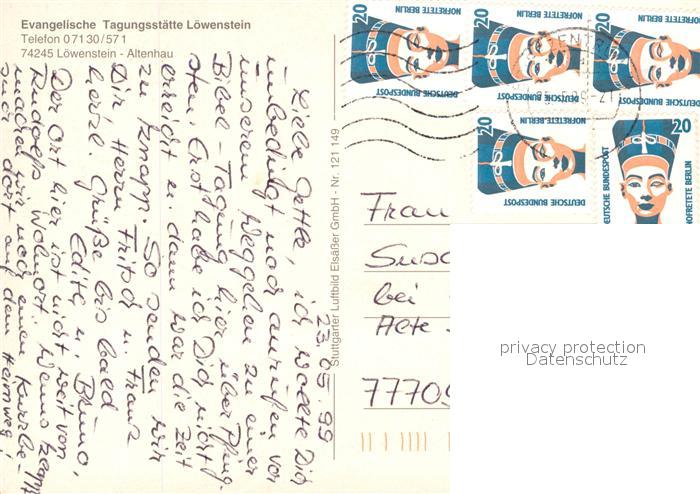 Evangelische Tagungsstätte Löwenstein
Telefon 07130/571
74245 Löwenstein - Altenhau
23.05.99
Liebe Dette, ich wollte Dich
unbedingt noch anrufen vor
unserem Weggehen zu einer
Bibel-Tagung hier über Pfing-
sten. Erst habe ich Dich nicht
erreicht u. dann war die Zeit
zu knapp. So senden wir
Dir Herrn Fritsch u. Frau
herzl. Grüße bis bald
Edith u. Bruno,
Der Ort hier ist nicht weit von
Rudolfs Wohnort. Wenns
machen wir noch einen Kurzbe-
such dort auf dem Heimweg!
Stuttgarter Luftbild Elsäßer GmbH - Nr. 121 149
20
NOFRETETE BERLIN
DEUTSCHE BUNDESPOST
20
NOFRETETE BERLIN
DEUTSCHE BUNDESPOST
20
NOFRETETE BERLIN
DEUTSCHE BUNDESPOST
20
NOFRETETE BERLIN
DEUTSCHE BUNDESPOST
20
NOFRETETE BERLIN
DEUTSCHE BUNDESPOST
Frau
bei
Alte
7770
privacy protection
Datenschutz